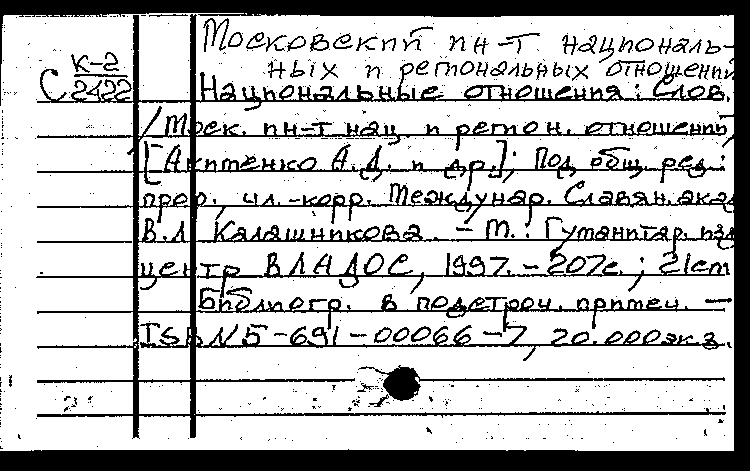 Московский ин-т националь-
ных и региональных отношений
С К-2/2422
Национальные отношения: Слов.
/Моск. ин-т нац. и регион. отношений;
[Акитенко А.Д. и др.]; Под общ. ред.:
проф., чл.-корр. Междунар. Славян. акад
В.Л Калашникова. - М.: Гуманитар. изд
центр ВЛАДОС, 1997. - 207с.; 21см
Библиогр. в подстроч. примеч. -
ISBN 5-691-00066-7, 20.000экз.